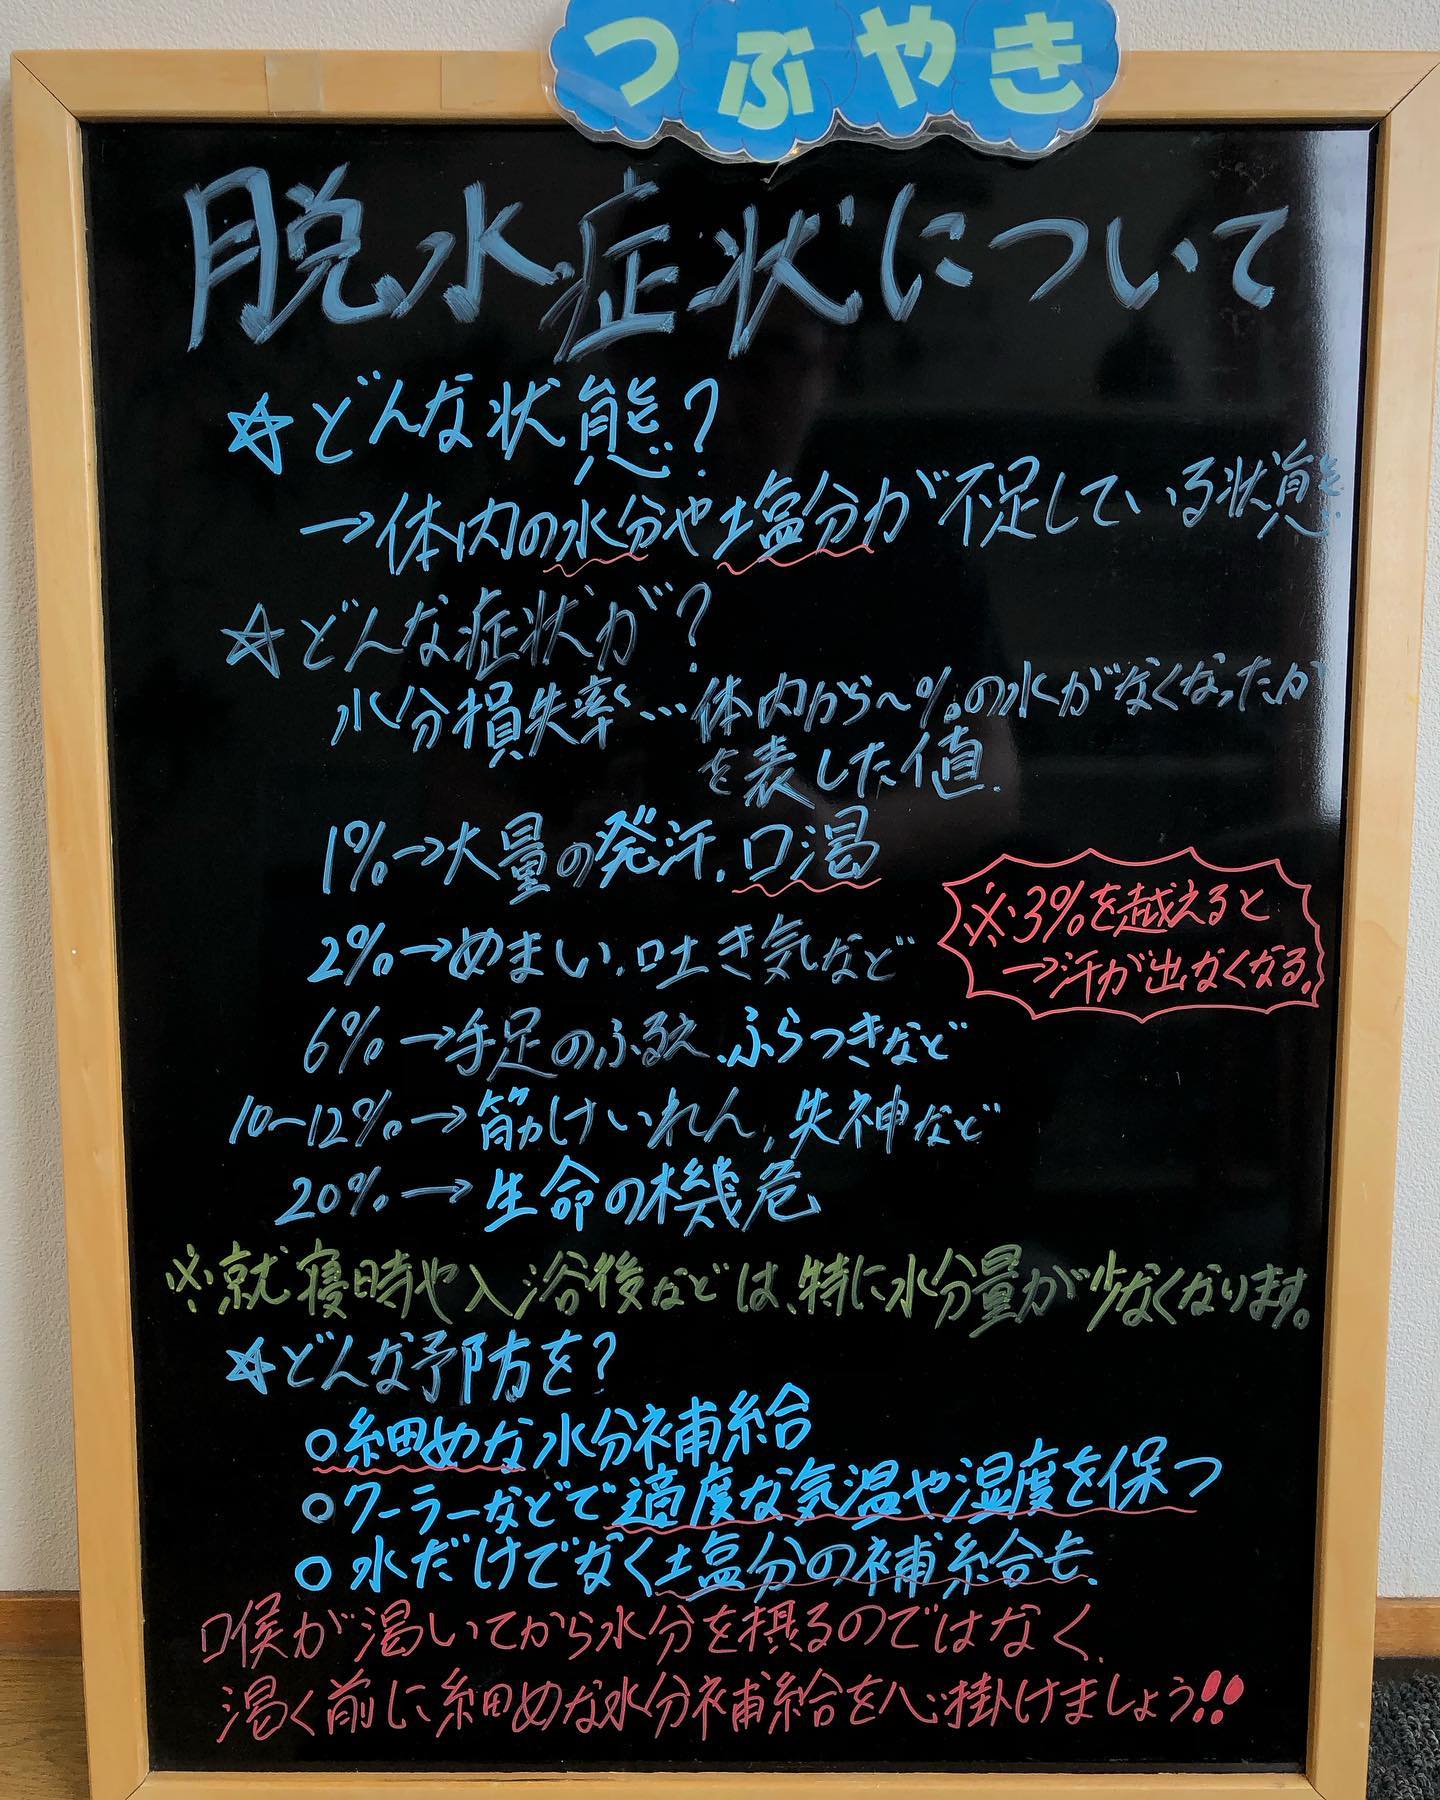 つぶやき
脱水症状について
☆どんな状態？
→体内の水分や塩分が不足している状態
☆どんな症状が？
水分損失率…体内から〜%の水がなくなったか
を表した値.
1%→大量の発汗、口渇
2%→めまい、吐き気など
※3%を越えると
→汗が出なくなる。
6%→手足のふるえ、ふらつきなど
10〜12%→筋けいれん,失神など
20%→生命の機危
※就寝時や入浴後などは、特に水分量が少なくなります。
☆どんな予防を？
○細めな水分補給
○クーラーなどで適度な気温や湿度を保つ
○水だけでなく塩分の補給も、
喉が渇いてから水分を摂るのではなく、
渇く前に細めな水分補給を心掛けましょう!!